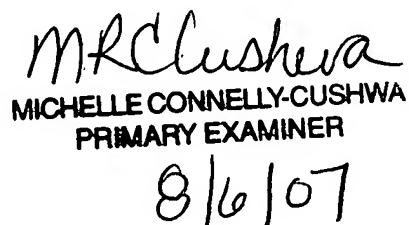 MRCCushwa
MICHELLE CONNELLY-CUSHWA
PRIMARY EXAMINER
8/6/07